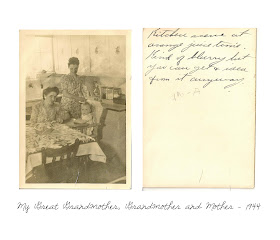 Kitchen scene at
orange juice time.
Kind of blurry but
you can get a idea
from it anyway.
My Great Grandmother, Grandmother and Mother - 1944